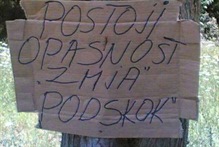 POSTOJI
OPASNOST
"ZMJA"
"PODSKOK"